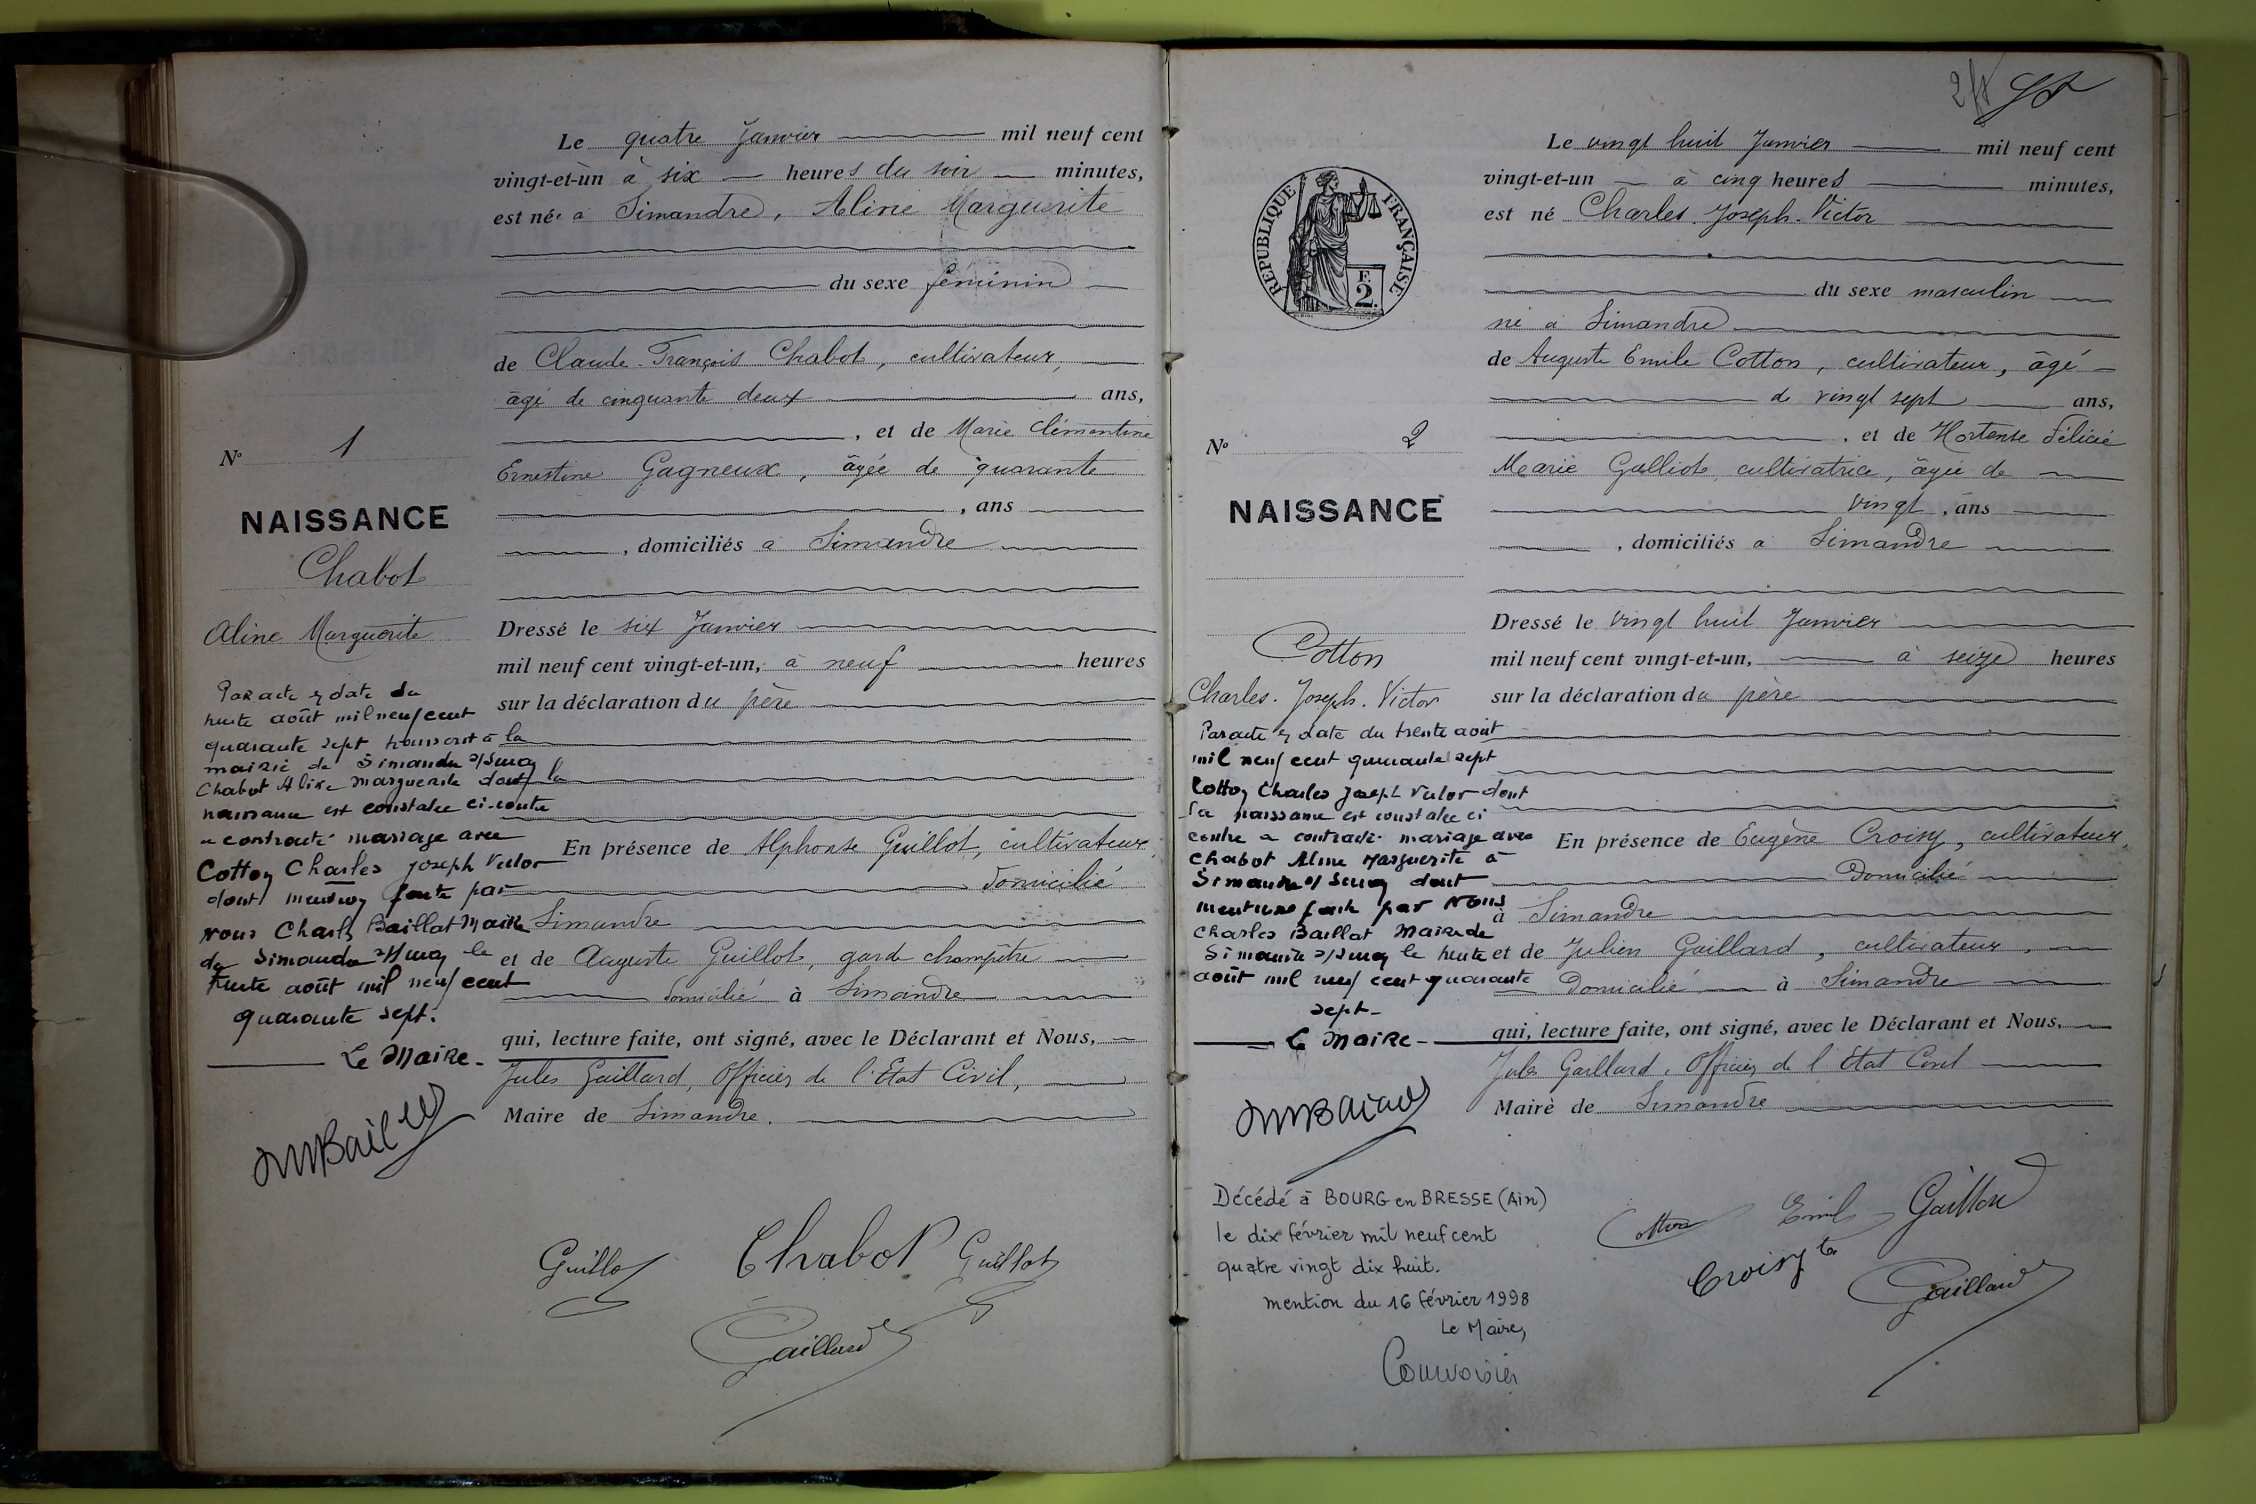 Le quatre Janvier mil neuf cent
vingt-et-un à six heures du soir minutes,
est née à Simandre, Aline Marguerite
du sexe féminin
de Claude-François Chabot, cultivateur,
âgé de cinquante deux ans,
, et de Marie Clémentine
Ernestine Gagneux, âgée de quarante
, ans
, domiciliés à Simandre
Dressé le six Janvier
mil neuf cent vingt-et-un, à neuf heures
sur la déclaration du père
En présence de Alphonse Guillot, cultivateur,
domicilié
Simandre
et de Auguste Guillot, garde champêtre
domicilié à Simandre
qui, lecture faite, ont signé, avec le Déclarant et Nous,
Jules Gaillard, Officier de l'Etat Civil,
Maire de Simandre.
Guillot Chabot Guillot
Gaillard
N° 1
NAISSANCE
Chabot
Aline Marguerite
Par acte en date du
trente août mil neuf cent
quarante sept transcrit à la
mairie de Simandre s/Suran
Chabot Aline Marguerite dont la
naissance est constatée ci-contre
a contracté mariage avec
Cotton Charles Joseph Victor
dont mention faite par
nous Charles Baillat Maire
de Simandre s/Suran le
trente août mil neuf cent
quarante sept.
Le Maire-
2
Le vingt huit Janvier mil neuf cent
vingt-et-un à cinq heures minutes,
est né Charles-Joseph-Victor
du sexe masculin
né à Simandre
de Auguste Emile Cotton, cultivateur, âgé
de vingt sept ans,
, et de Hortense Félicie
Marie Galliot, cultivatrice, âgée de
vingt, ans
, domiciliés à Simandre
Dressé le vingt huit Janvier
mil neuf cent vingt-et-un, à seize heures
sur la déclaration du père
En présence de Eugène Croisy, cultivateur,
Domicilié
à Simandre
et de Julien Gaillard, cultivateur,
Domicilié à Simandre
qui, lecture faite, ont signé, avec le Déclarant et Nous,
Jules Gaillard, Officier de l'Etat Civil
Maire de Simandre
Cotton Emile Gaillard
Croisy
Gaillard
REPUBLIQUE FRANÇAISE
F.
2.
N° 2
NAISSANCE
Cotton
Charles-Joseph-Victor
Par acte en date du trente août
mil neuf cent quarante sept
Cotton Charles Joseph Victor dont
la naissance est constatée ci
contre a contracté mariage avec
Chabot Aline Marguerite à
Simandre s/Suran dont
mention faite par Nous
Charles Baillat Maire de
Simandre s/Suran le trente
août mil neuf cent quarante
sept-
Le Maire-
Décédé à BOURG en BRESSE (Ain)
le dix février mil neuf cent
quatre vingt dix huit.
mention du 16 février 1998
Le Maire,
Courvoisier